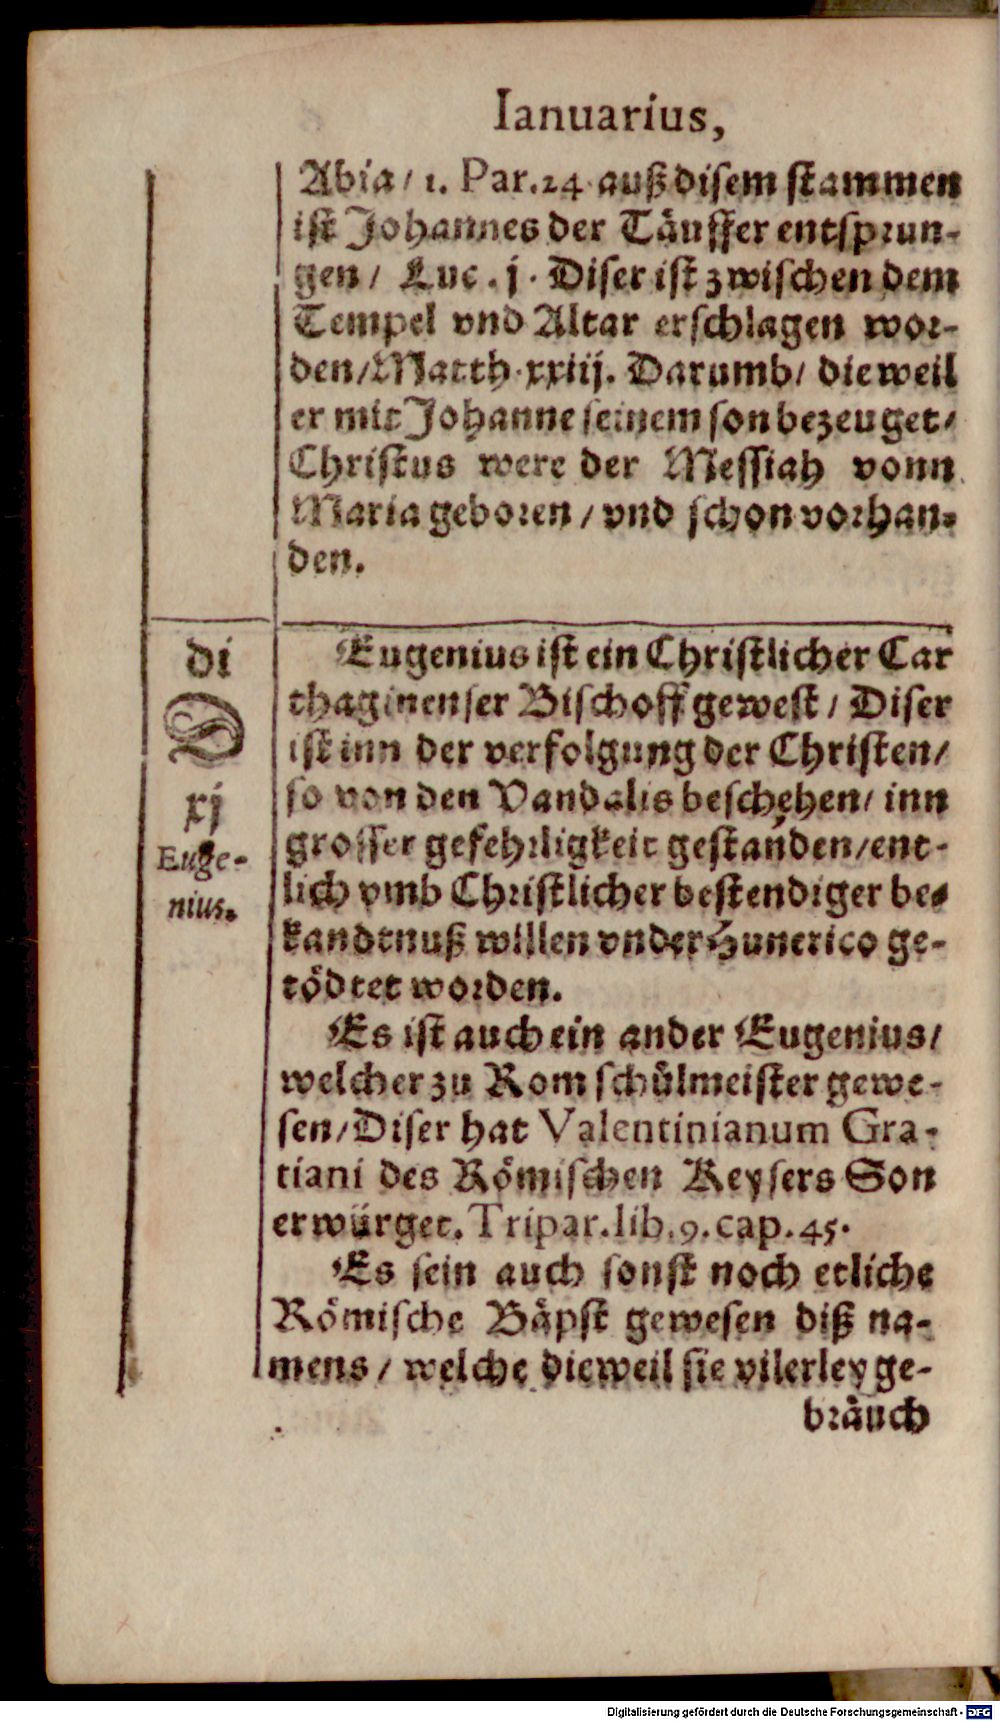 Ianuarius,
Abia/ 1. Par.24 auß disem stammen
ist Johannes der Täuffer entsprun-
gen/ Luc. j. Diser ist zwischen dem
Tempel vnd Altar erschlagen wor-
den/Matth.xxiij. Darumb/ dieweil
er mit Johanne seinem son bezeuget/
Christus were der Messiah vonn
Maria geboren/ vnd schon vorhan-
den.
di
D
xj
Euge-
nius.
Eugenius ist ein Christlicher Car
thaginenser Bischoff gewest/ Diser
ist inn der verfolgung der Christen/
so von den Vandalis beschehen/ inn
grosser gefehrligkeit gestanden/ent-
lich vmb Christlicher bestendiger be-
kandtnuß willen vnder Hunerico ge-
tödtet worden.
Es ist auch ein ander Eugenius/
welcher zu Rom schůlmeister gewe-
sen/Diser hat Valentinianum Gra-
tiani des Römischen Keysers Son
erwürget. Tripar.lib.9.cap.45.
Es sein auch sonst noch etliche
Römische Bäpst gewesen diß na-
mens/ welche dieweil sie vilerley ge-
bräuch
Digitalisierung gefördert durch die Deutsche Forschungsgemeinschaft - DFG